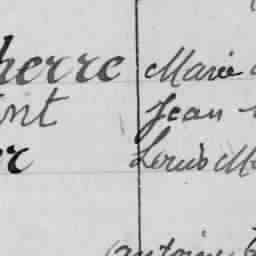 herre Marie
nt Jean
r Louis M
Antoine